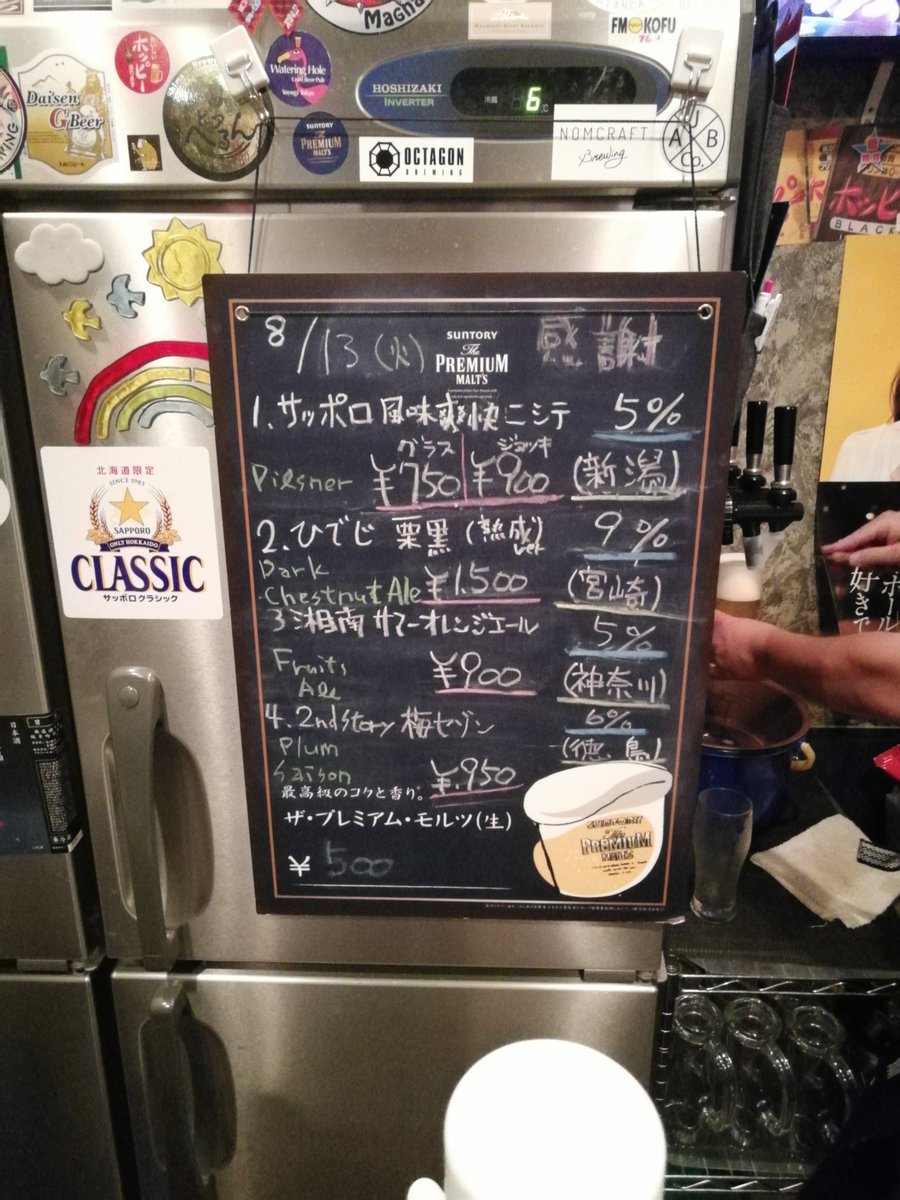 Magna
FM KOFU
ホッピー
Watering Hole
Craft Beer Pub
Yoyogi Tokyo
HOSHIZAKI
INVERTER
冷蔵
6
Daisen
G Beer
SUNTORY
The
PREMIUM
MALT'S
OCTAGON
BREWING
NOMCRAFT
Brewing
A J B
Co.
ホッピ
BLACK
8/13(火)
SUNTORY
The
PREMIUM
MALT'S
感謝
1.サッポロ風味爽快ニシテ 5%
グラス ジョッキ
Pilsner ¥750 ¥900 (新潟)
2.ひでじ 栗黒 (熟成)ver 9%
Dark
Chestnut Ale ¥1.500 (宮崎)
3湘南サマーオレンジエール 5%
Fruits
Ale ¥900 (神奈川)
4.2nd story 梅セゾン 6%
Plum
Saison ¥.950 (徳島)
最高級のコクと香り。
ザ・プレミアム・モルツ(生)
¥ 500
SUNTORY
The
PREMIUM
MALT'S
北海道限定
SINCE 1985
SAPPORO
ONLY HOKKAIDO
CLASSIC
サッポロクラシック
好きで
日本酒